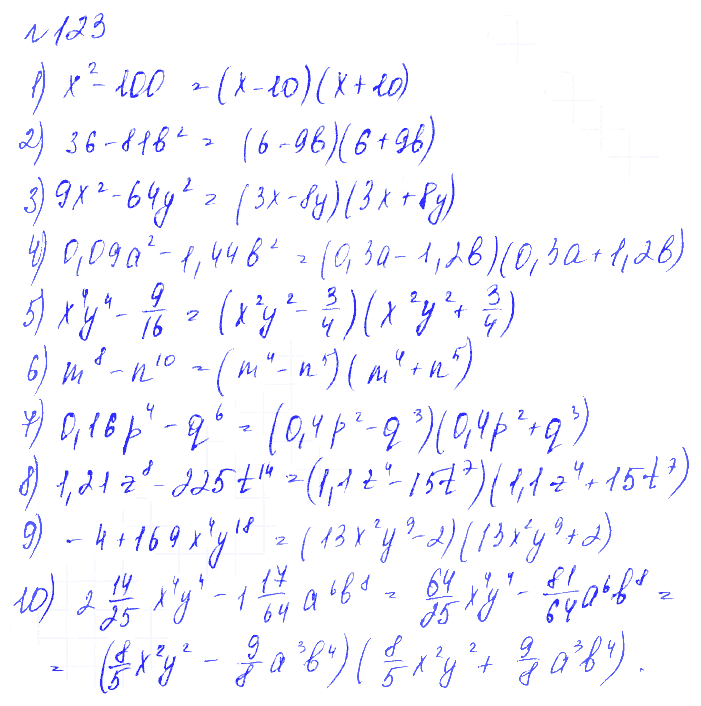 №123
1) x² - 100 = (x - 10)(x + 10)
2) 36 - 81b² = (6 - 9b)(6 + 9b)
3) 9x² - 64y² = (3x - 8y)(3x + 8y)
4) 0,09a² - 1,44b² = (0,3a - 1,2b)(0,3a + 1,2b)
5) x⁴y⁴ - 9/16 = (x²y² - 3/4)(x²y² + 3/4)
6) m⁸ - n¹⁰ = (m⁴ - n⁵)(m⁴ + n⁵)
7) 0,16p⁴ - q⁶ = (0,4p² - q³)(0,4p² + q³)
8) 1,21z⁸ - 225t¹⁴ = (1,1z⁴ - 15t⁷)(1,1z⁴ + 15t⁷)
9) -4 + 169x⁴y¹⁸ = (13x²y⁹ - 2)(13x²y⁹ + 2)
10) 2 14/25 x⁴y⁴ - 1 17/64 a⁶b⁸ = 64/25 x⁴y⁴ - 81/64 a⁶b⁸ =
= (8/5 x²y² - 9/8 a³b⁴)(8/5 x²y² + 9/8 a³b⁴).